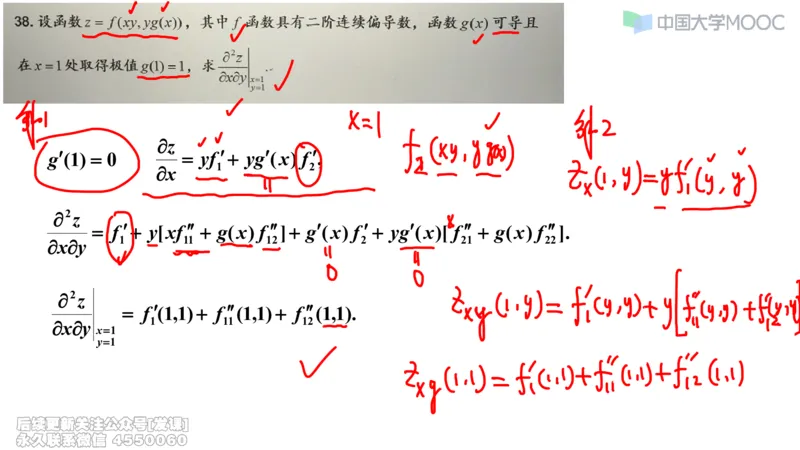 38. 设函数 z = f(xy, yg(x)), 其中 f 函数具有二阶连续偏导数, 函数 g(x) 可导且
在 x = 1 处取得极值 g(1) = 1, 求 ∂²z/∂x∂y |x=1 y=1.
中国大学MOOC
x=1
f₂(xy, y g(x))
g′(1) = 0
∂z/∂x = yf₁′ + yg′(x) f₂′.
Zx(1,y) = y f₁′(y, y)
∂²z/∂x∂y = f₁′ + y[xf₁₁″ + g(x) f₁₂″] + g′(x) f₂′ + yg′(x)[x f₂₁″ + g(x) f₂₂″].
0
0
∂²z/∂x∂y |x=1 y=1 = f₁′(1,1) + f₁₁″(1,1) + f₁₂″(1,1).
Zxy(1,y) = f₁′(y,y) + y[f₁₁″(y,y) + f₁₂″(y,y)]
Zxy(1,1) = f₁′(1,1) + f₁₁″(1,1) + f₁₂″(1,1)
后续更新关注公众号[发课]
永久联系微信 4550060